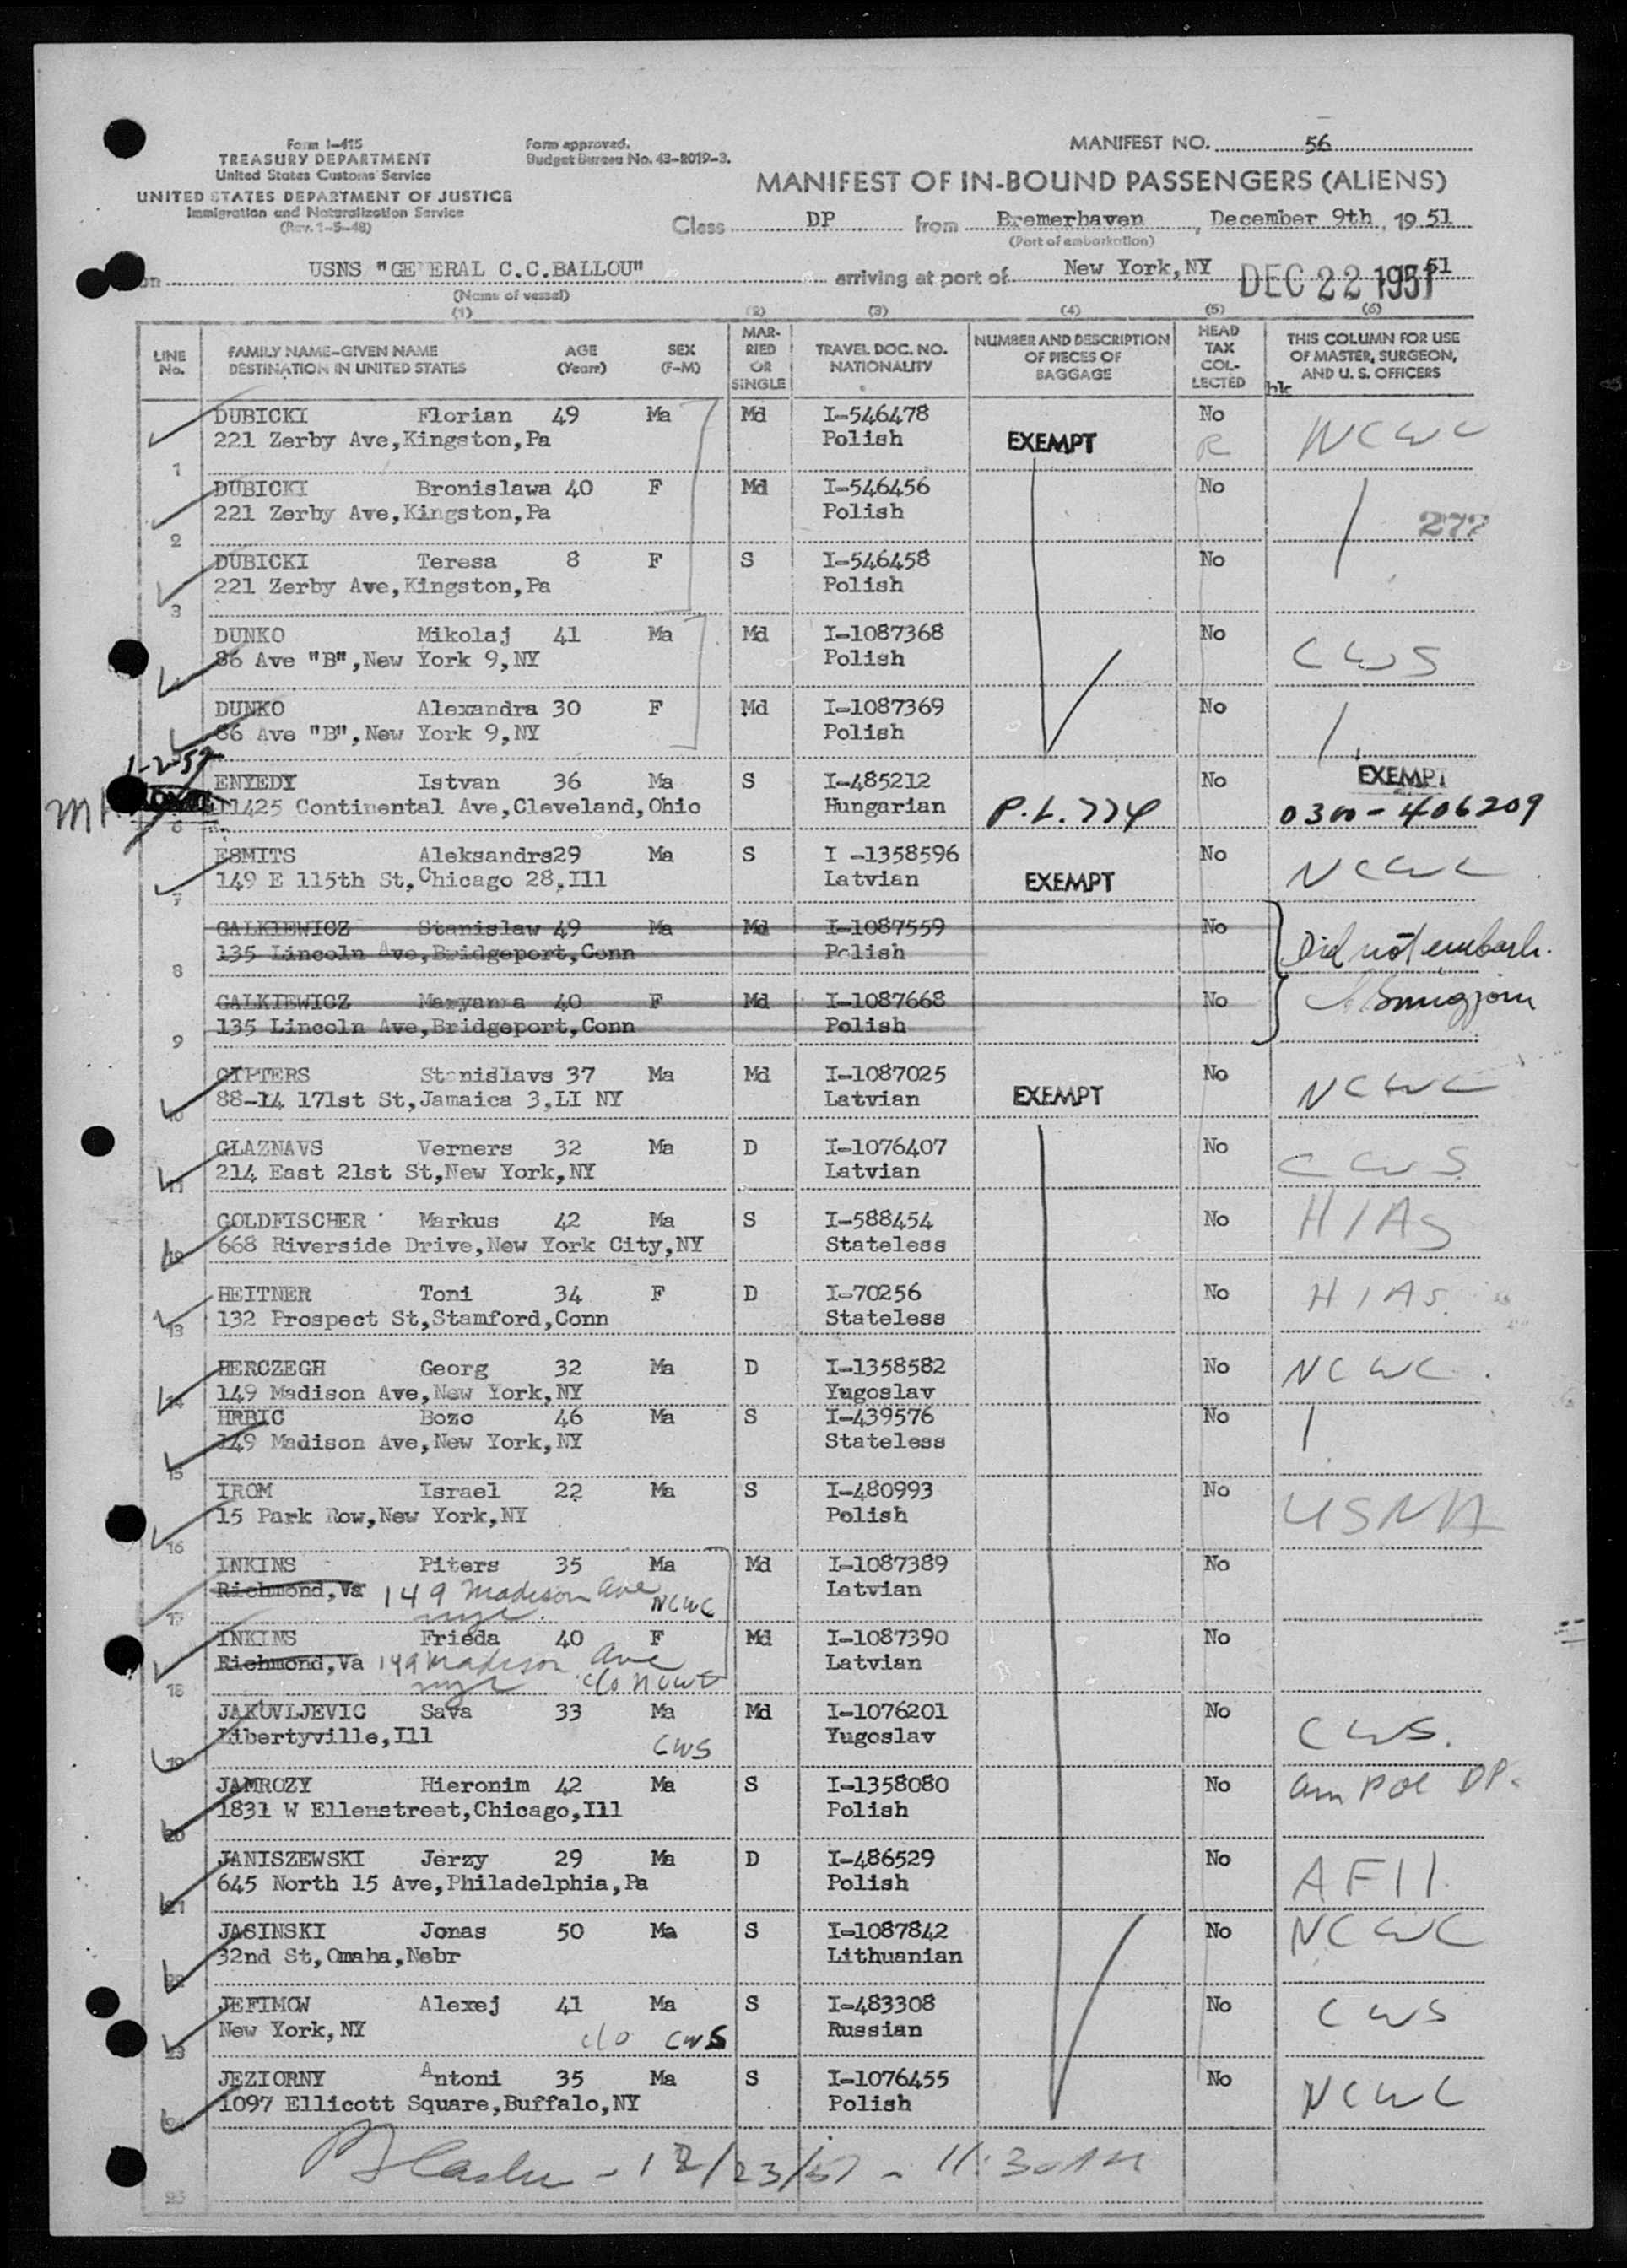 Form I-415
TREASURY DEPARTMENT
United States Customs Service
UNITED STATES DEPARTMENT OF JUSTICE
Immigration and Naturalization Service
(Rev. 1-5-48)
Form approved.
Budget Bureau No. 43-R019-3.
MANIFEST NO. 56
MANIFEST OF IN-BOUND PASSENGERS (ALIENS)
Class DP from Bremerhaven, December 9th, 19 51
(Port of embarkation)
on USNS "GENERAL C.C.BALLOU" arriving at port of New York,NY DEC 22 1951 51
(Name of vessel)
(1) (2) (3) (4) (5) (6)
LINE No. FAMILY NAME-GIVEN NAME DESTINATION IN UNITED STATES AGE (Years) SEX (F-M) MARRIED OR SINGLE TRAVEL DOC. NO. NATIONALITY NUMBER AND DESCRIPTION OF PIECES OF BAGGAGE HEAD TAX COLLECTED THIS COLUMN FOR USE OF MASTER, SURGEON, AND U. S. OFFICERS
hk
DUBICKI Florian 49 Ma Md I-546478 No
221 Zerby Ave,Kingston,Pa Polish EXEMPT R NCWC
1
DUBICKI Bronislawa 40 F Md I-546456 No
221 Zerby Ave,Kingston,Pa Polish 277
2
DUBICKI Teresa 8 F S I-546458 No
221 Zerby Ave,Kingston,Pa Polish
3
DUNKO Mikolaj 41 Ma Md I-1087368 No
86 Ave "B",New York 9,NY Polish CWS
DUNKO Alexandra 30 F Md I-1087369 No
86 Ave "B",New York 9,NY Polish
1-2-52
ENYEDY Istvan 36 Ma S I-485212 No EXEMPT
11425 Continental Ave,Cleveland,Ohio Hungarian P.L. 774 0300-406209
6
ESMITS Aleksandrs29 Ma S I -1358596 No
149 E 115th St,Chicago 28,Ill Latvian EXEMPT NCWC
7
GALKIEWICZ Stanislaw 49 Ma Md I-1087559 No
135 Lincoln Ave,Bridgeport,Conn Polish Did not embark.
8
GALKIEWICZ Maryanna 40 F Md I-1087668 No
135 Lincoln Ave,Bridgeport,Conn Polish
9
GIPTERS Stanislavs 37 Ma Md I-1087025 No
88-14 171st St,Jamaica 3,LI NY Latvian EXEMPT NCWC
10
GLAZNAVS Verners 32 Ma D I-1076407 No
214 East 21st St,New York,NY Latvian CWS
11
GOLDFISCHER Markus 42 Ma S I-588454 No
668 Riverside Drive,New York City,NY Stateless HIAS
12
HEITNER Toni 34 F D I-70256 No
132 Prospect St,Stamford,Conn Stateless HIAS.
13
HERCZEGH Georg 32 Ma D I-1358582 No
149 Madison Ave,New York,NY Yugoslav NCWC.
14
HRBIC Bozo 46 Ma S I-439576 No
149 Madison Ave,New York,NY Stateless
15
IROM Israel 22 Ma S I-480993 No
15 Park Row,New York,NY Polish USNA
16
INKINS Piters 35 Ma Md I-1087389 No
Richmond,Va 149 Madison Ave NCWC Latvian
nyc.
17
INKINS Frieda 40 F Md I-1087390 No
Richmond,Va 149 Madison Ave Latvian
nyc c/o NCWC
18
JAKOVLJEVIC Sava 33 Ma Md I-1076201 No
Libertyville,Ill CWS Yugoslav CWS.
19
JAMROZY Hieronim 42 Ma S I-1358080 No Am Pol DP.
1831 W Ellenstreet,Chicago,Ill Polish
20
JANISZEWSKI Jerzy 29 Ma D I-486529 No
645 North 15 Ave,Philadelphia,Pa Polish AFII.
21
JASINSKI Jonas 50 Ma S I-1087842 No NCWC
32nd St,Omaha,Nebr Lithuanian
22
JEFIMOW Alexej 41 Ma S I-483308 No CWS
New York,NY c/o CWS Russian
23
JEZIORNY Antoni 35 Ma S I-1076455 No
1097 Ellicott Square,Buffalo,NY Polish NCWC
24
- 12/23/51 - 11:30 AM
25